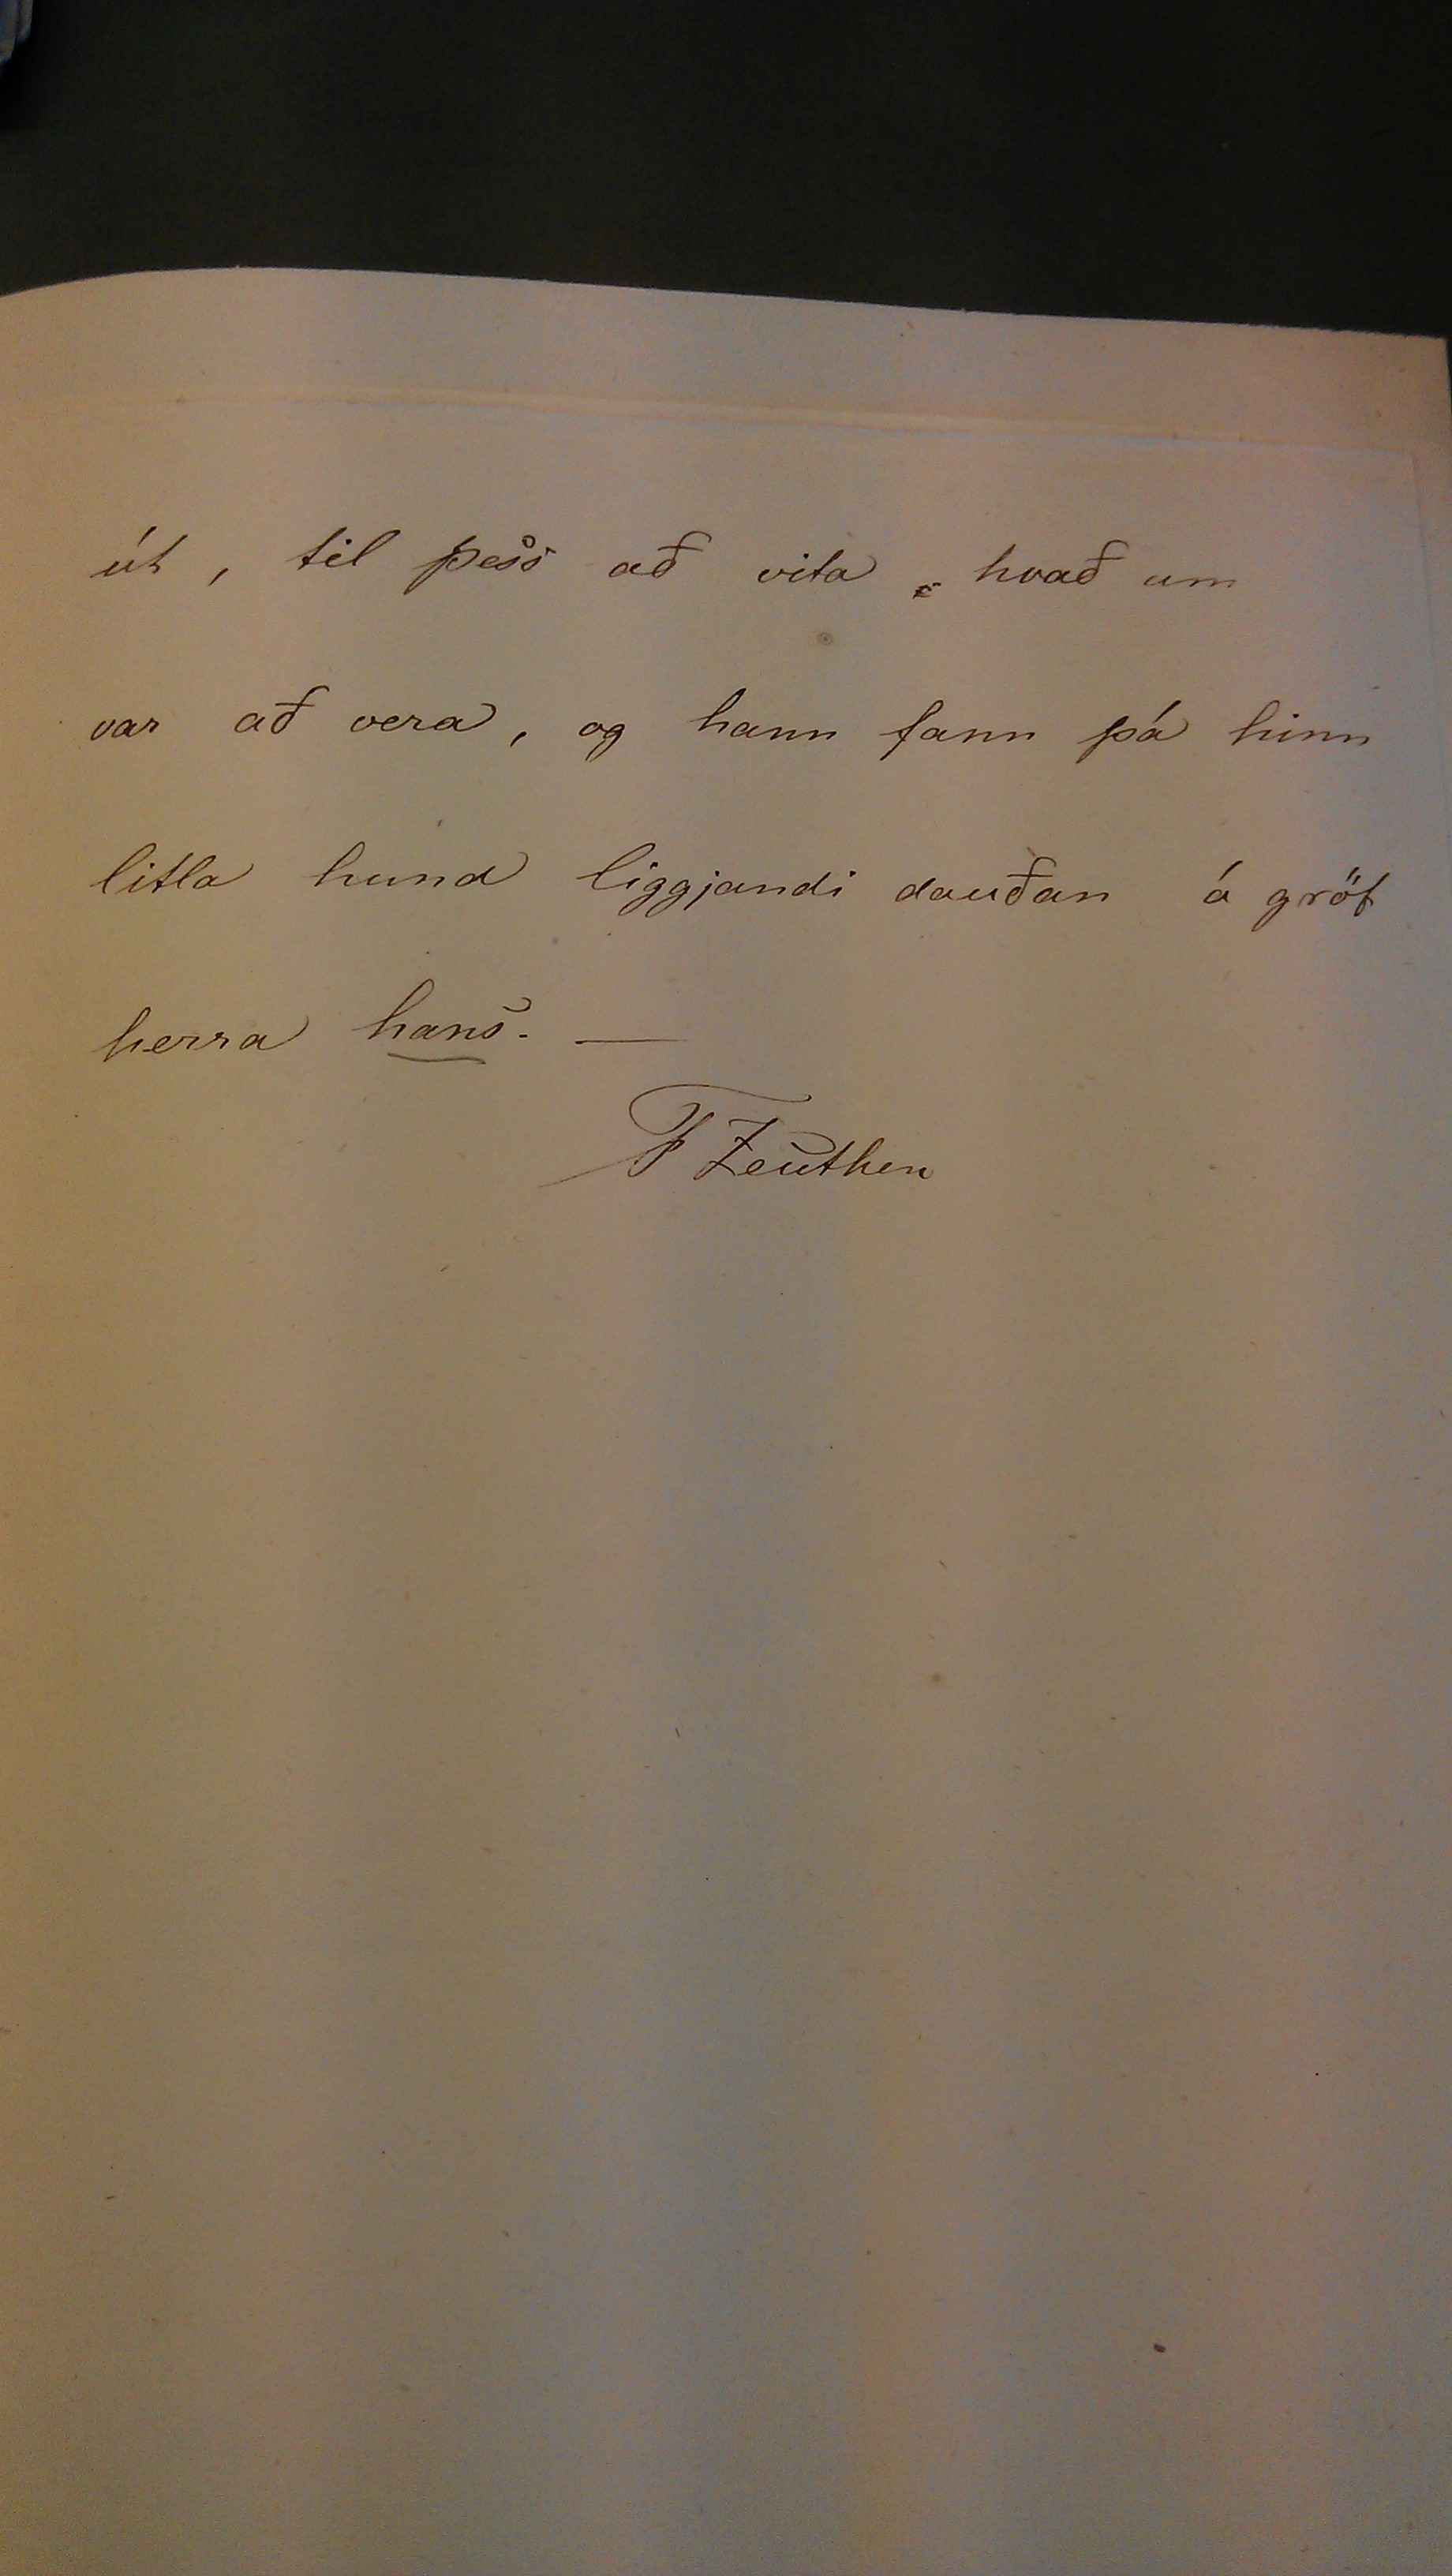 út, til þess að vita, hvað um
var að vera, og hann fann þá hinn
litla hund liggjandi dauðan á gröf
herra hans. —
F Zeuthen